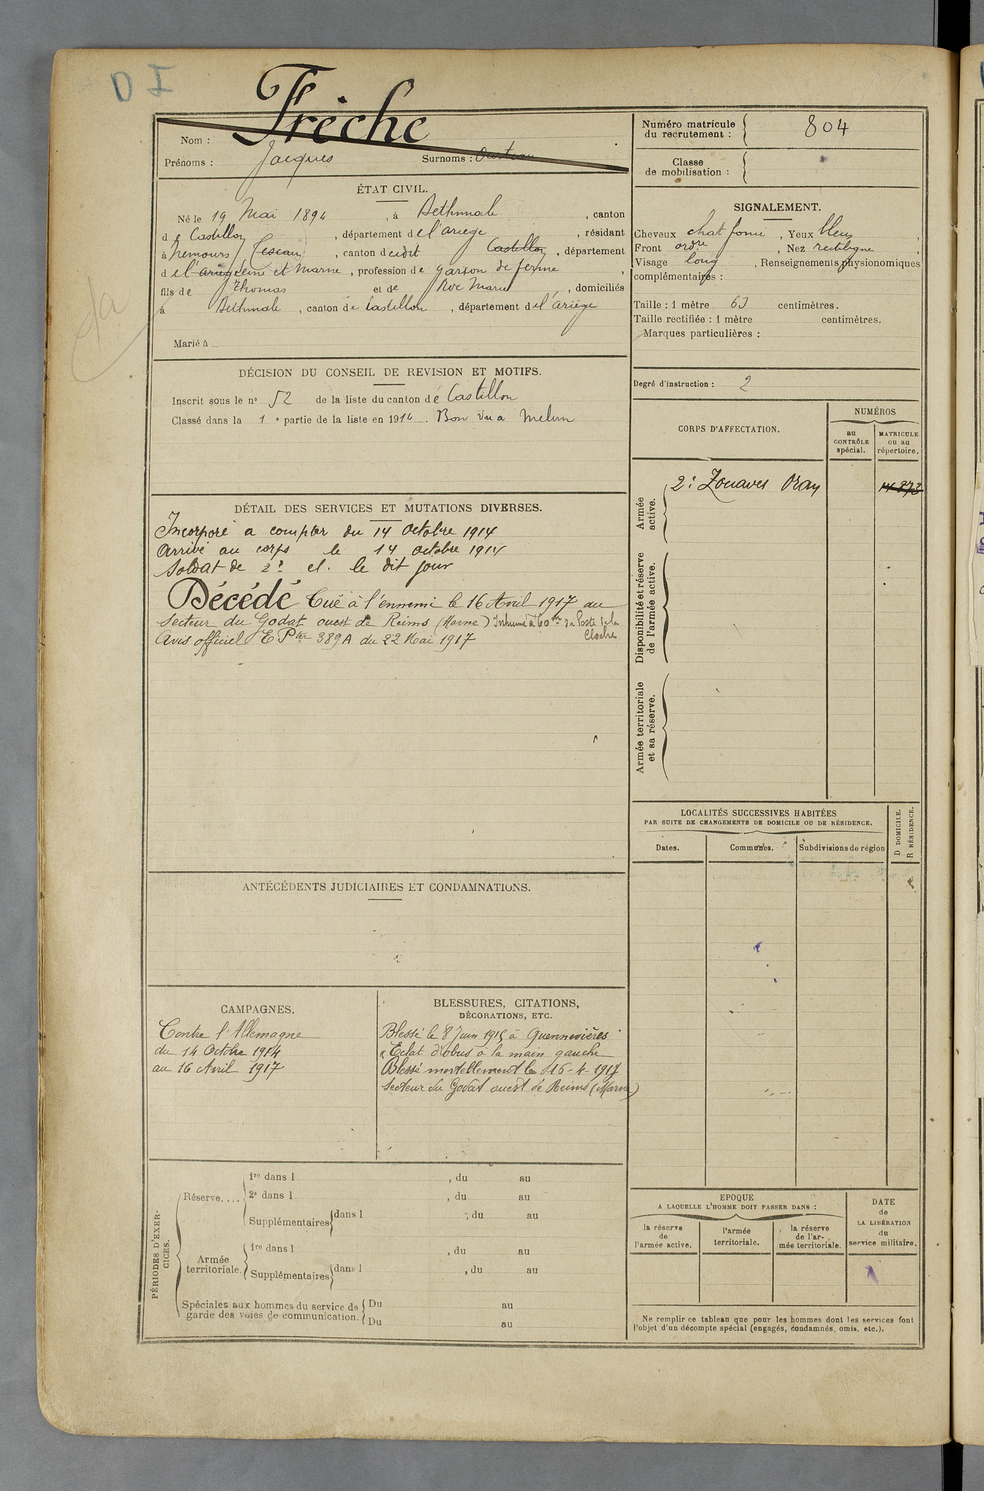 DI
Frèche
Nom :
Prénoms : Jacques Surnoms :
ÉTAT CIVIL.
Né le 19 Mai 1894, à Bethmale, canton
de Castillon, département de l'ariège, résidant
à Nemours, canton dudit Castillon, département
de l'ariège Seine et Marne, profession de garçon de ferme,
fils de Thomas et de Roc Marie, domiciliés
à Bethmale, canton de Castillon, département de l'ariège
Marié à
DÉCISION DU CONSEIL DE REVISION ET MOTIFS.
Inscrit sous le n° 52 de la liste du canton de Castillon
Classé dans la 1e partie de la liste en 1914. Bon Vu a Melun
DÉTAIL DES SERVICES ET MUTATIONS DIVERSES.
Incorporé a compter du 14 Octobre 1914
Arrivé au corps le 14 octobre 1914
Soldat de 2e cl. le dit jour
Décédé Tué à l'ennemi le 16 Avril 1917 au
secteur du Godat ouest de Reims (Marne) Inhumé à 60m du Poste de la
Cloche
Avis officiel E Pter 389A du 22 Mai 1917
ANTÉCÉDENTS JUDICIAIRES ET CONDAMNATIONS.
CAMPAGNES.
Contre l'Allemagne
du 14 Octobre 1914
au 16 Avril 1917
BLESSURES, CITATIONS,
DÉCORATIONS, ETC.
Blessé le 8 Juin 1915 à Quennevières
Eclat d'obus à la main gauche
Blessé mortellement le 16-4-1917
secteur du Godat ouest de Reims (Marne)
PÉRIODES D'EXERCICES.
Réserve....
1re dans l , du au
2e dans l , du au
Supplémentaires dans l , du au
Armée
territoriale.
1re dans l , du au
Supplémentaires dans l , du au
Spéciales aux hommes du service de
garde des voies de communication.
Du au
Du au
Numéro matricule
du recrutement : 804
Classe
de mobilisation :
SIGNALEMENT.
Cheveux chat foncé, Yeux bleus,
Front ordre, Nez rectiligne,
Visage long, Renseignements physionomiques
complémentaires :
Taille : 1 mètre 63 centimètres.
Taille rectifiée : 1 mètre centimètres.
Marques particulières :
Degré d'instruction : 2
CORPS D'AFFECTATION.
NUMÉROS
au
CONTRÔLE
spécial.
MATRICULE
ou au
répertoire.
Armée
active.
2e Zouaves Oran
Disponibilité et réserve
de l'armée active.
Armée territoriale
et sa réserve.
LOCALITÉS SUCCESSIVES HABITÉES
PAR SUITE DE CHANGEMENTS DE DOMICILE OU DE RÉSIDENCE.
D DOMICILE.
R RÉSIDENCE.
Dates. Communes. Subdivisions de région
EPOQUE
A LAQUELLE L'HOMME DOIT PASSER DANS :
la réserve
de
l'armée active.
l'armée
territoriale.
la réserve
de l'ar-
mée territoriale.
DATE
de
LA LIBÉRATION
du
service militaire.
Ne remplir ce tableau que pour les hommes dont les services font
l'objet d'un décompte spécial (engagés, condamnés, omis, etc.).